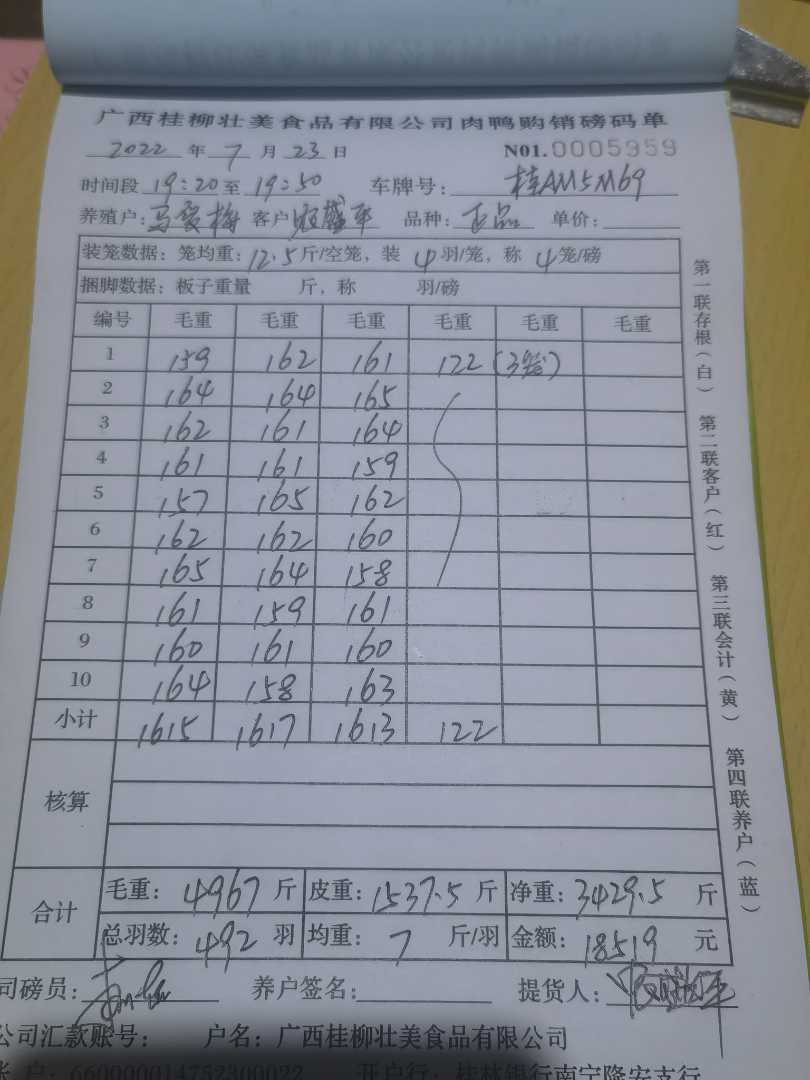 广西桂柳壮美食品有限公司肉鸭购销磅码单
2022 年 7 月 23 日 N01.0005959
时间段 19:20 至 19:50 车牌号: 桂AM5M69
养殖户: 马爱梅 客户 平 品种: 正品 单价:
装笼数据: 笼均重: 12.5 斤/空笼, 装 4 羽/笼, 称 4 笼/磅
捆脚数据: 板子重量 斤, 称 羽/磅
编号 毛重 毛重 毛重 毛重 毛重 毛重
1 159 162 161 122 (3笼)
2 164 164 165
3 162 161 164
4 161 161 159
5 157 165 162
6 162 162 160
7 165 164 158
8 161 159 161
9 160 161 160
10 164 158 163
小计 1615 1617 1613 122
核算
合计
毛重: 4967 斤 皮重: 1537.5 斤 净重: 3429.5 斤
总羽数: 492 羽 均重: 7 斤/羽 金额: 18519 元
司磅员: 养户签名: 提货人: 平
公司汇款账号: 户名: 广西桂柳壮美食品有限公司
账 户: 660000014752300022 开户行: 桂林银行南宁隆安支行
第一联存根(白) 第二联客户(红) 第三联会计(黄) 第四联养户(蓝)